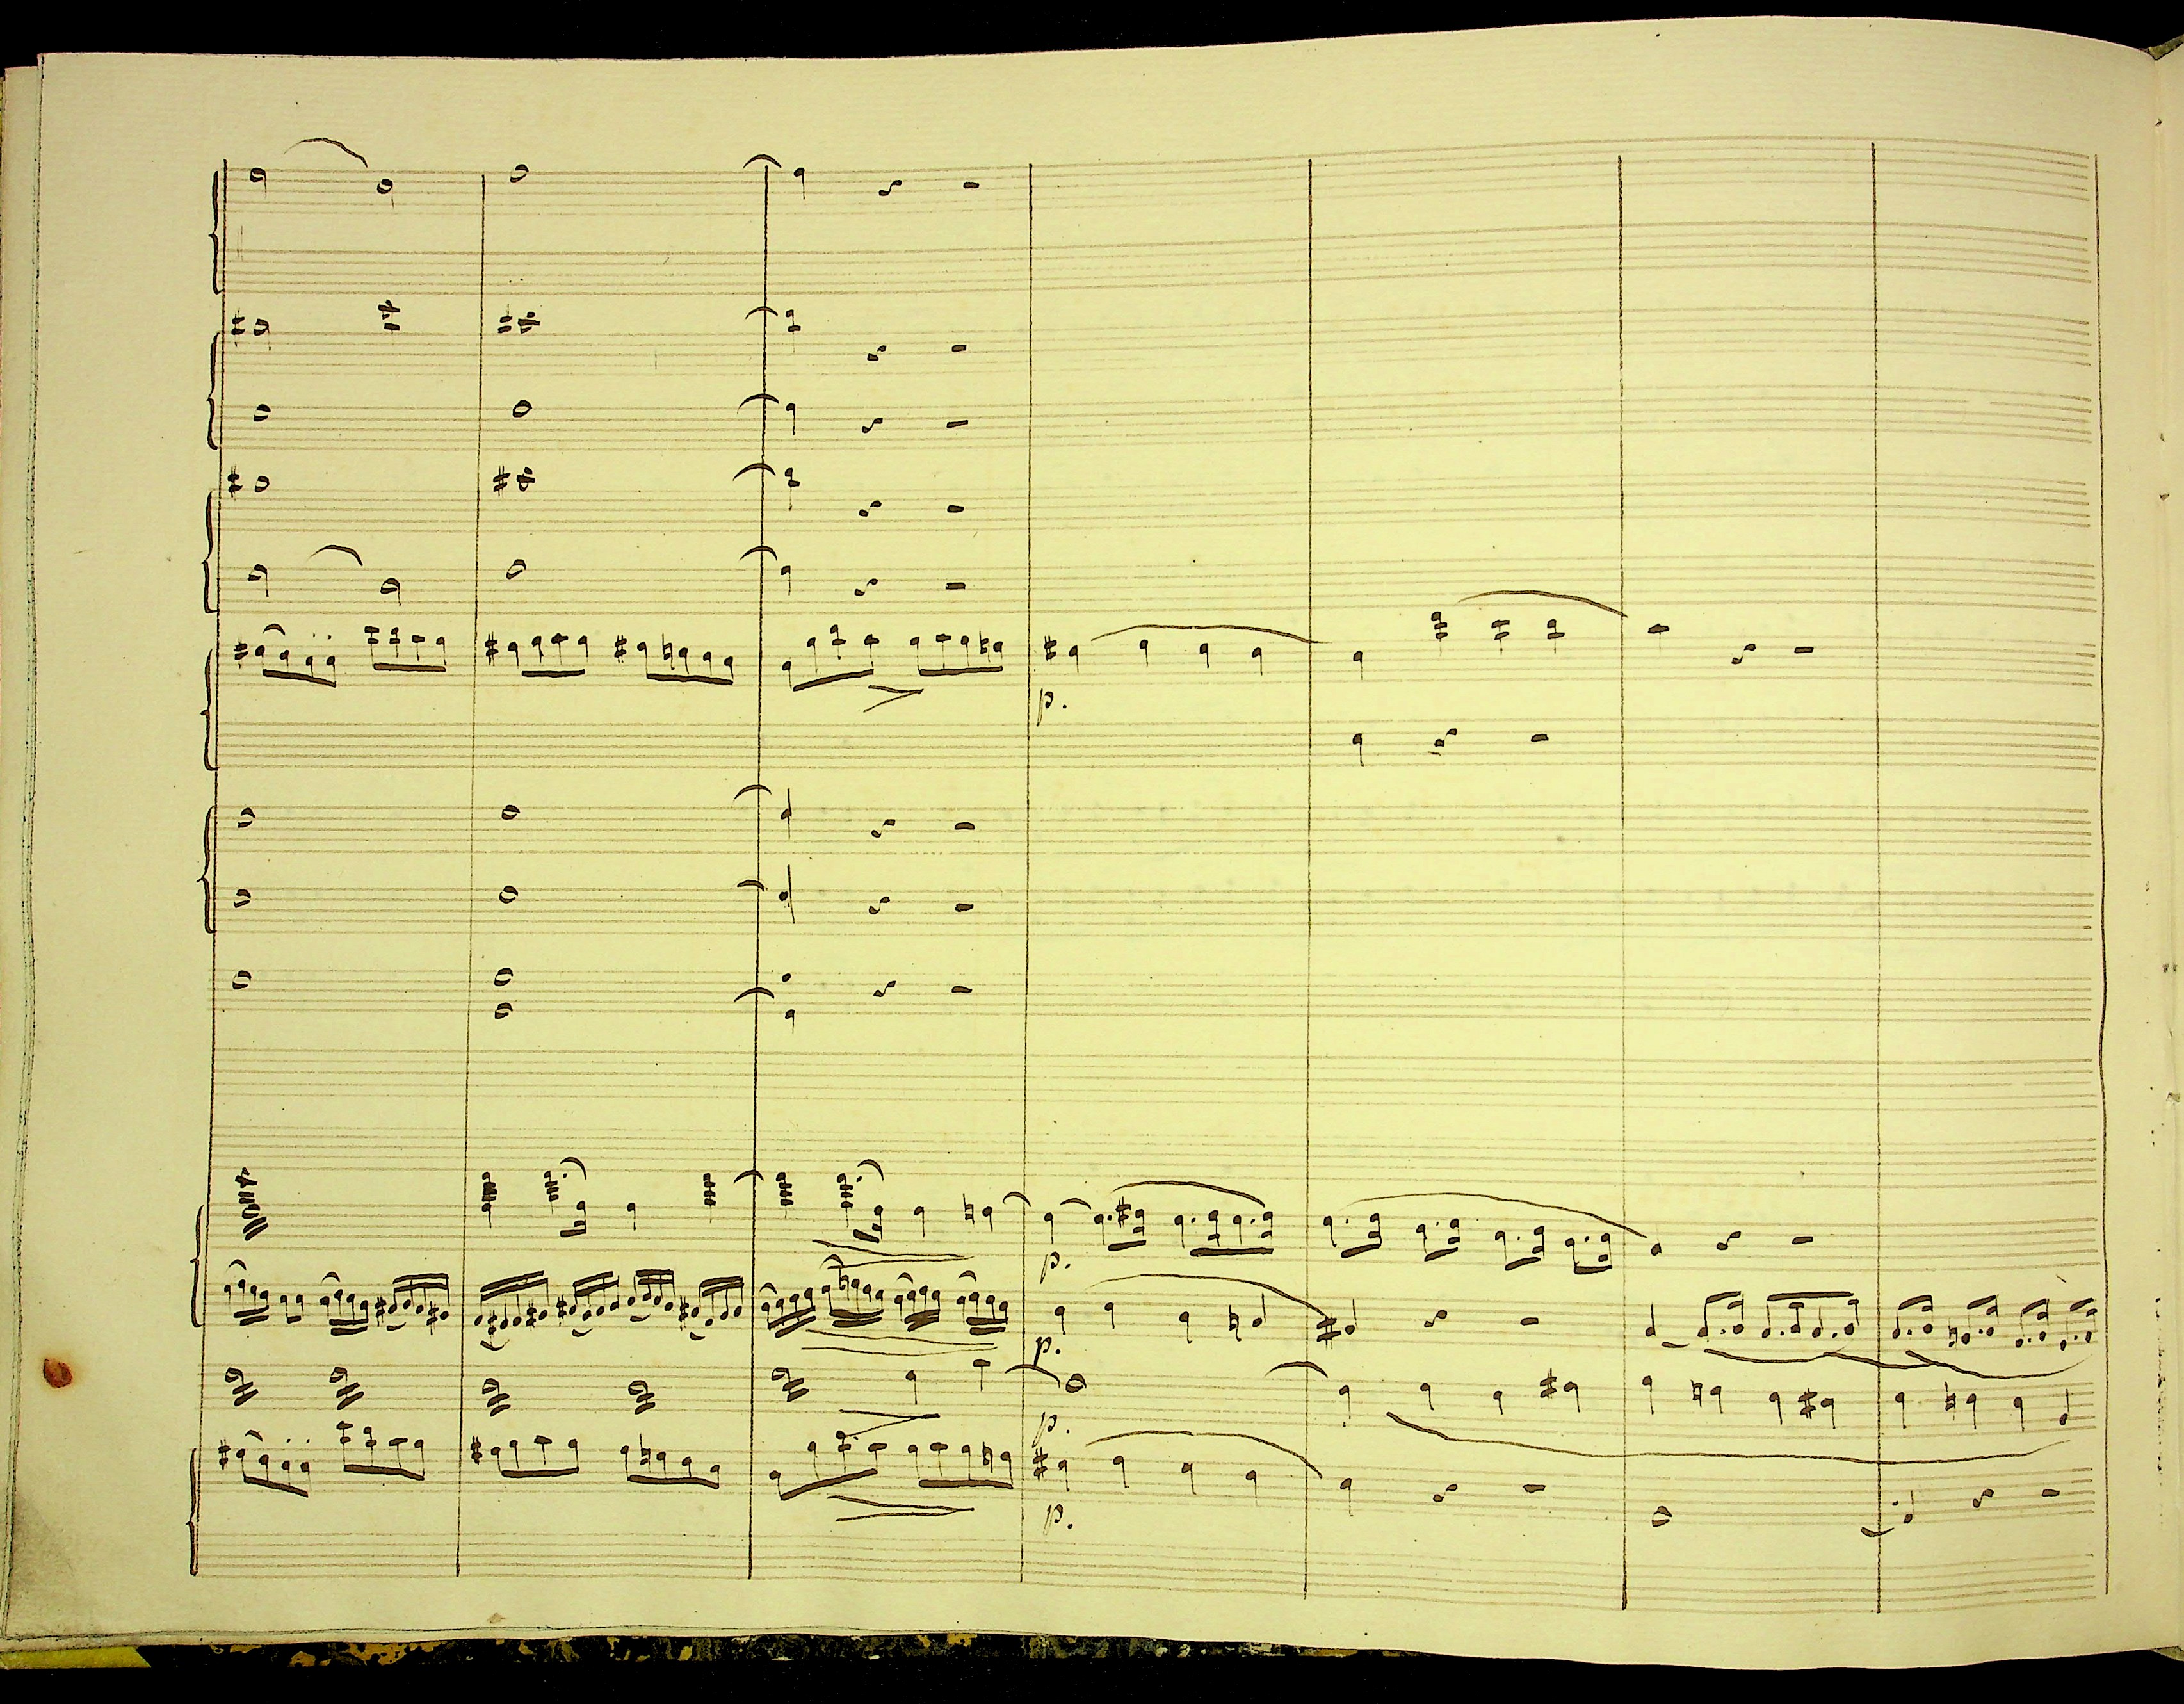 p.
p.
p.
p.
p.